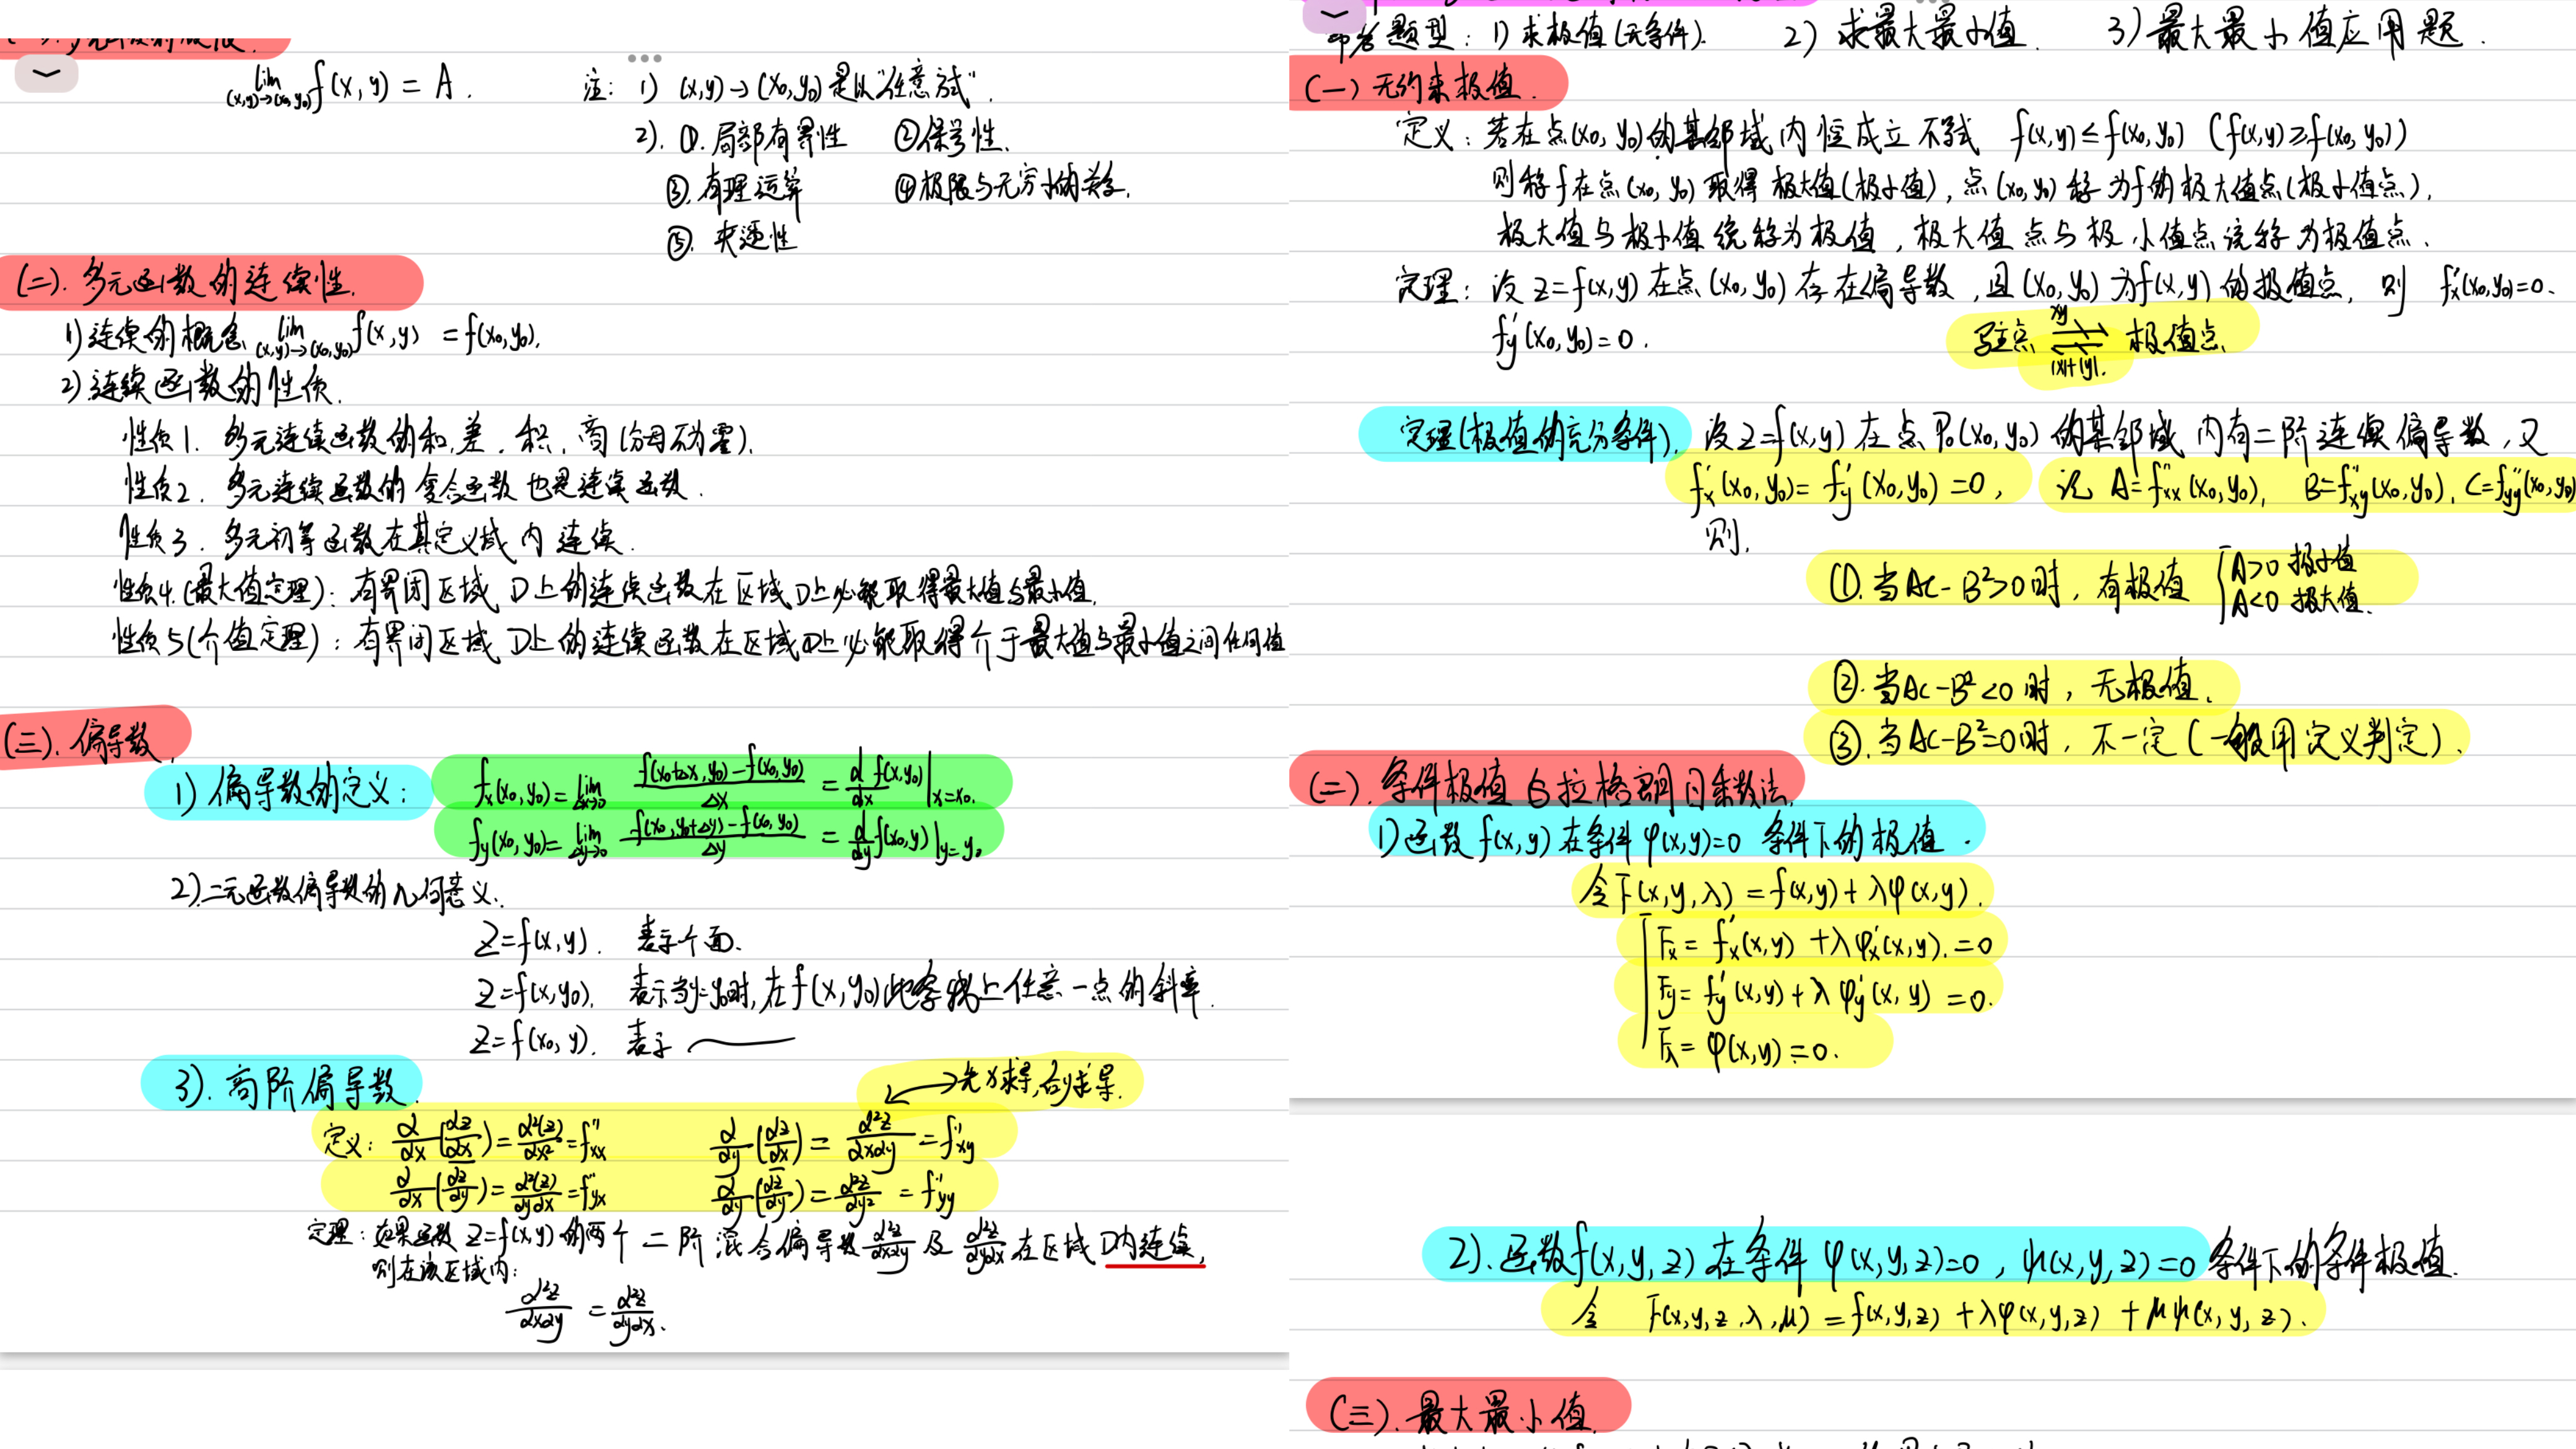 lim f(x,y) = A.
(x,y)→(x₀,y₀)
注: 1) (x,y)→(x₀,y₀)是以“任意方式”.
2). ①.局部有界性 ②保号性.
③.有理运算 ④极限与无穷小的关系.
⑤. 夹逼性
(二). 多元函数的连续性.
1)连续的概念 lim f(x,y) = f(x₀,y₀).
(x,y)→(x₀,y₀)
2)连续函数的性质.
性质1. 多元连续函数的和,差,积,商(分母不为零).
性质2. 多元连续函数的复合函数也是连续函数.
性质3. 多元初等函数在其定义域内连续.
性质4.(最大值定理): 有界闭区域D上的连续函数在区域D上必能取得最大值与最小值.
性质5(介值定理): 有界闭区域D上的连续函数在区域D上必能取得介于最大值与最小值之间任何值
(三). 偏导数.
1) 偏导数的定义: fx(x₀,y₀)= lim Δx→0 (f(x₀+Δx,y₀)-f(x₀,y₀))/Δx = d/dx f(x,y₀)|x=x₀.
fy(x₀,y₀)= lim Δy→0 (f(x₀,y₀+Δy)-f(x₀,y₀))/Δy = d/dy f(x₀,y)|y=y₀
2).二元函数偏导数的几何意义.
Z=f(x,y). 表示个面.
Z=f(x,y₀). 表示当y=y₀时,在f(x,y₀)此条线上任意一点的斜率.
Z=f(x₀,y). 表示
3). 高阶偏导数.
→先x求导,后y求导.
定义: ∂/∂x(∂z/∂x)=∂²(z)/∂x²=f''xx ∂/∂y(∂z/∂x)=∂²z/∂x∂y=f''xy
∂/∂x(∂z/∂y)=∂²(z)/∂y∂x=f''yx ∂/∂y(∂z/∂y)=∂²z/∂y²=f''yy
定理: 如果函数 Z=f(x,y)的两个二阶混合偏导数∂²z/∂x∂y及∂²z/∂y∂x在区域D内连续,
则在该区域内:
∂²z/∂x∂y = ∂²z/∂y∂x.
题型: 1) 求极值(无条件). 2) 求最大最小值. 3) 最大最小值应用题.
(一)无约束极值.
定义: 若在点(x₀,y₀)的某邻域内恒成立不等式 f(x,y)≤f(x₀,y₀) (f(x,y)≥f(x₀,y₀))
则称f在点(x₀,y₀)取得极大值(极小值),点(x₀,y₀)称为f的极大值点(极小值点).
极大值与极小值统称为极值,极大值点与极小值点统称为极值点.
定理: 设Z=f(x,y)在点(x₀,y₀)存在偏导数,且(x₀,y₀)为f(x,y)的极值点, 则 f'x(x₀,y₀)=0.
f'y(x₀,y₀)=0. 驻点 xy ⇌ |x|+|y|. 极值点.
定理(极值的充分条件). 设Z=f(x,y)在点P₀(x₀,y₀)的某邻域内有二阶连续偏导数,又
f'x(x₀,y₀)=f'y(x₀,y₀)=0, 记 A=f''xx(x₀,y₀), B=f''xy(x₀,y₀), C=f''yy(x₀,y₀)
则.
①.当AC-B²>0时,有极值 { A>0 极小值
A<0 极大值.
②.当AC-B²<0时,无极值.
③.当AC-B²=0时,不一定(一般用定义判定).
(二).条件极值与拉格朗日乘数法.
1)函数f(x,y)在条件φ(x,y)=0 条件下的极值.
令F(x,y,λ)=f(x,y)+λφ(x,y).
Fx=f'x(x,y)+λφ'x(x,y).=0
Fy=f'y(x,y)+λφ'y(x,y)=0.
Fλ=φ(x,y)=0.
2).函数f(x,y,z)在条件φ(x,y,z)=0,ψ(x,y,z)=0条件下的条件极值.
令 F(x,y,z,λ,μ)=f(x,y,z)+λφ(x,y,z)+μψ(x,y,z).
(三).最大最小值.